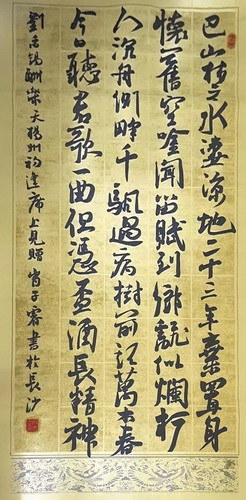 巴山楚水淒涼地二十三年棄置身
懷舊空吟聞笛賦到鄉翻似爛柯
人沉舟側畔千颿過病樹前頭萬木春
今日聽君歌一曲但憑盃酒長精神
劉禹錫酬樂天揚州初逢席上見贈 肖子睿書於長沙